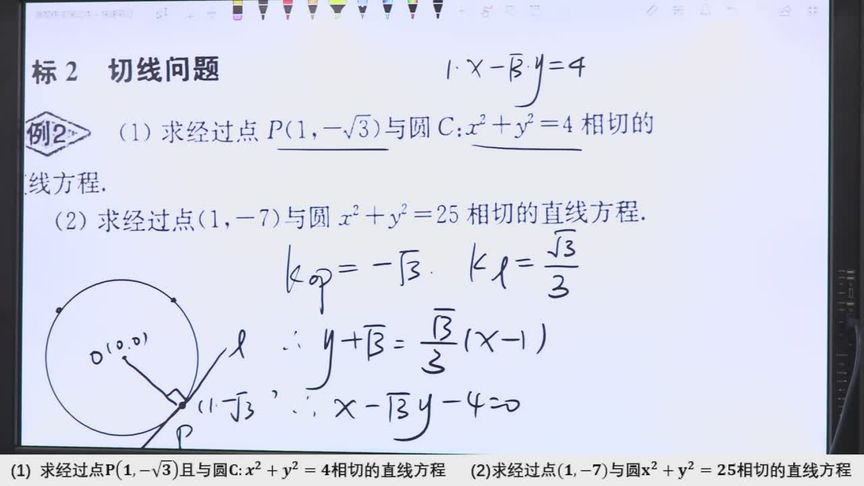 标2 切线问题
1·x-√3·y=4
例2 (1) 求经过点 P(1,-√3)与圆 C:x²+y²=4 相切的
线方程.
(2) 求经过点(1,-7)与圆 x²+y²=25 相切的直线方程.
k_op=-√3. k_l=√3/3
O(0,0)
l
∴ y+√3=√3/3(x-1)
(1,-√3)
∴ x-√3y-4=0
P
(1) 求经过点P(1,-√3)且与圆C:x²+y²=4相切的直线方程 (2)求经过点(1,-7)与圆x²+y²=25相切的直线方程